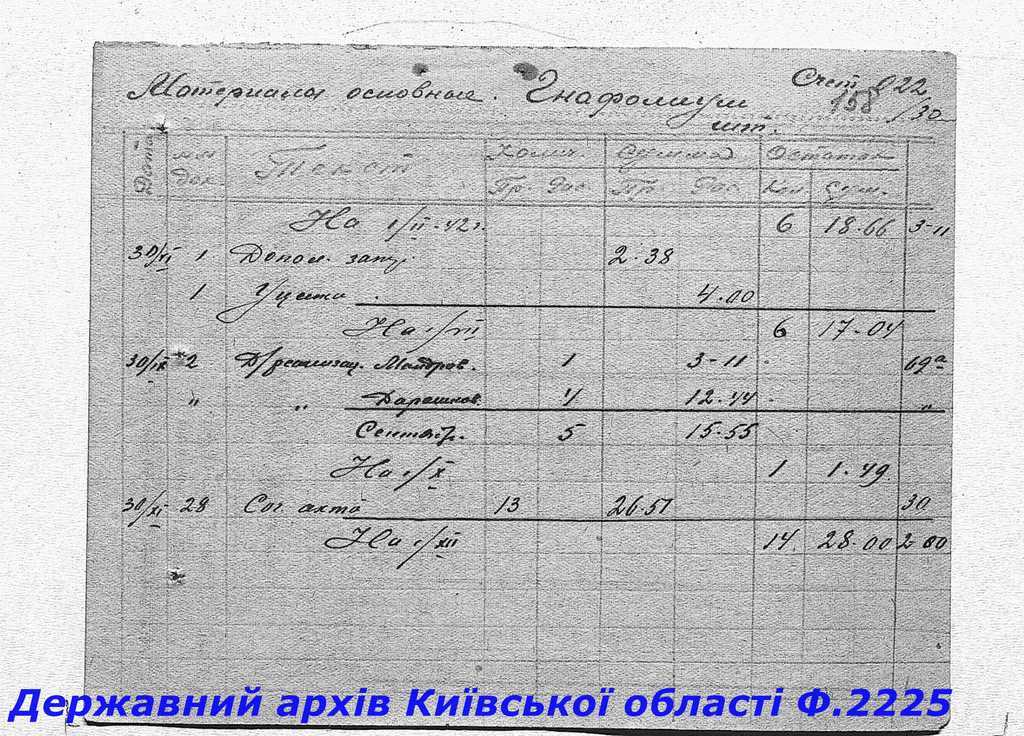 Материалы основные. Гнафолиум Счет 022
шт. 158 /30
Дата №№ док. Текст Колич. Сумма Остаток
Пр. Рас. Пр. Рас. Кол. Сум.
На 1/II-42г. 6 18.66 3-11
1 Допол. 2.38
1 Уценка 4.00
На 1/VII 6 17-04
30/IX 2 Д/реализац. 1 3-11 19а
" " 4 12.44 "
Сентябр. 5 15-55
На 1/X 1 1.49
30/XI 28 Сог. акта 13 26.51 30
На 1/XII 14 28.00 2-00
Державний архів Київської області Ф.2225